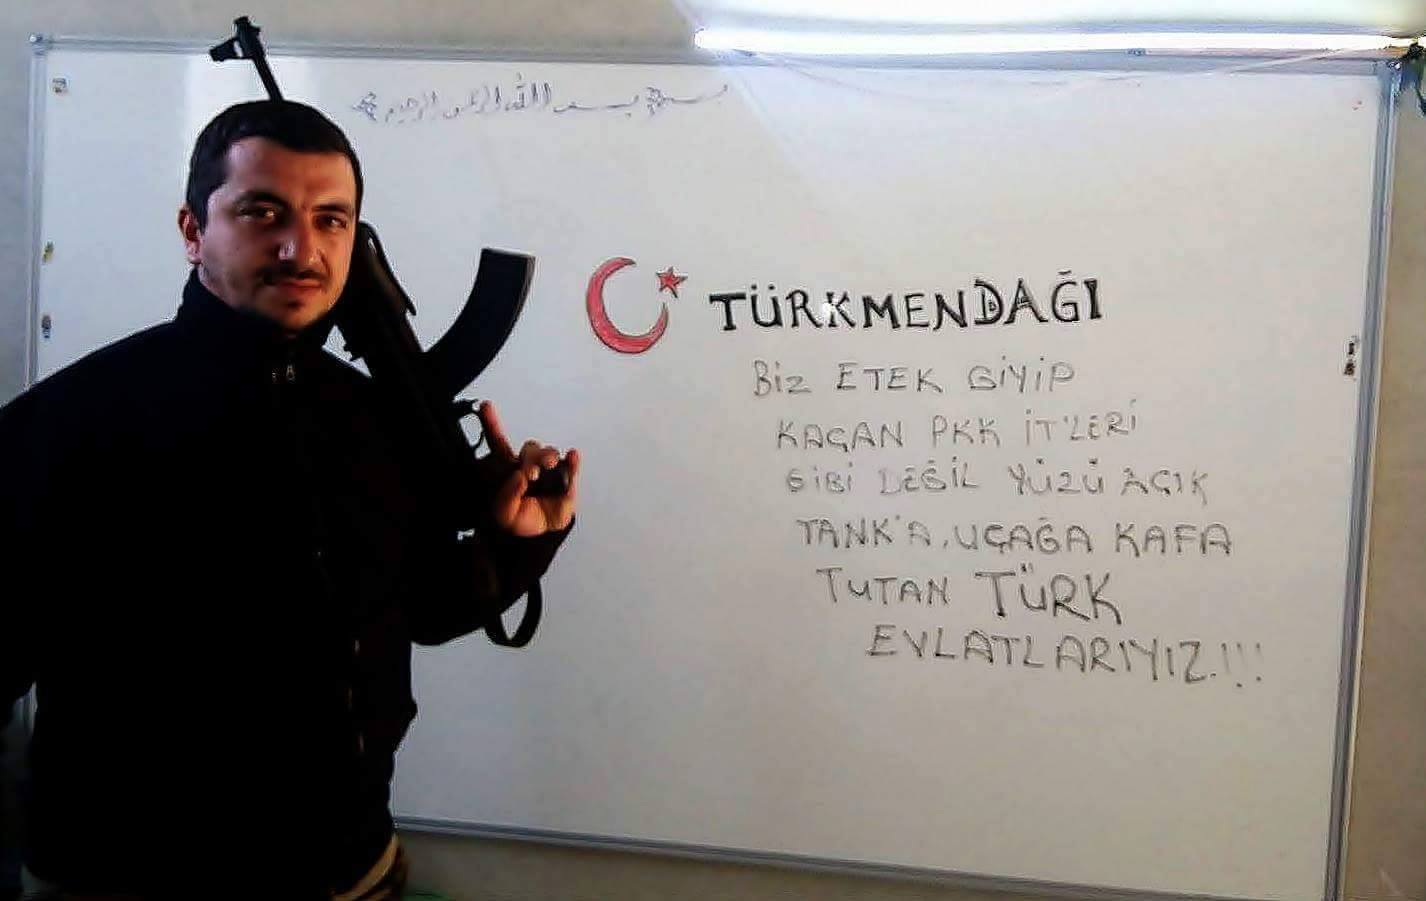 بسم الله الرحمن الرحيم
TÜRKMENDAĞI
BİZ ETEK GİYİP
KAÇAN PKK İT'LERİ
GİBİ DEĞİL YÜZÜ AÇIK
TANK'A, UÇAĞA KAFA
TUTAN TÜRK
EVLATLARIYIZ.!!!